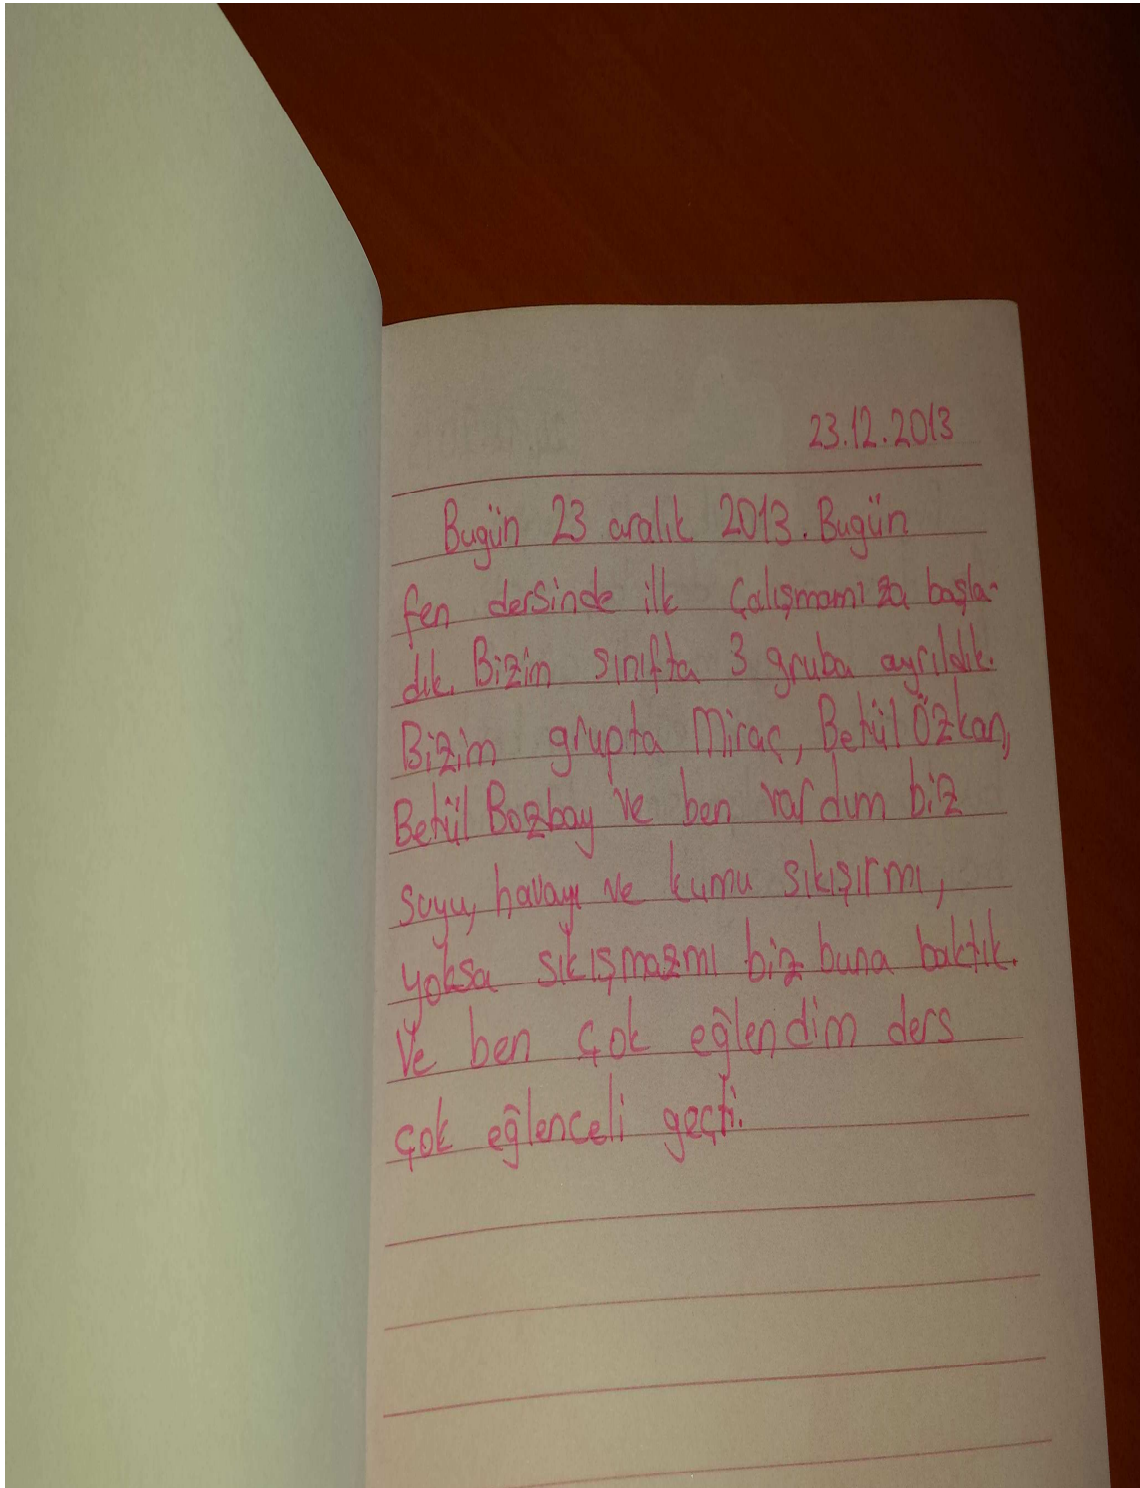 23.12.2013
Bugün 23 aralık 2013. Bugün
fen dersinde ilk çalışmamıza başla-
dık. Bizim sınıfta 3 gruba ayrıldık.
Bizim grupta Miraç, Betül Özkan,
Betül Bozbay ve ben vardım biz
suyu, havayı ve kumu sıkışırmı,
yoksa sıkışmazmı biz buna baktık.
Ve ben çok eğlendim ders
çok eğlenceli geçti.